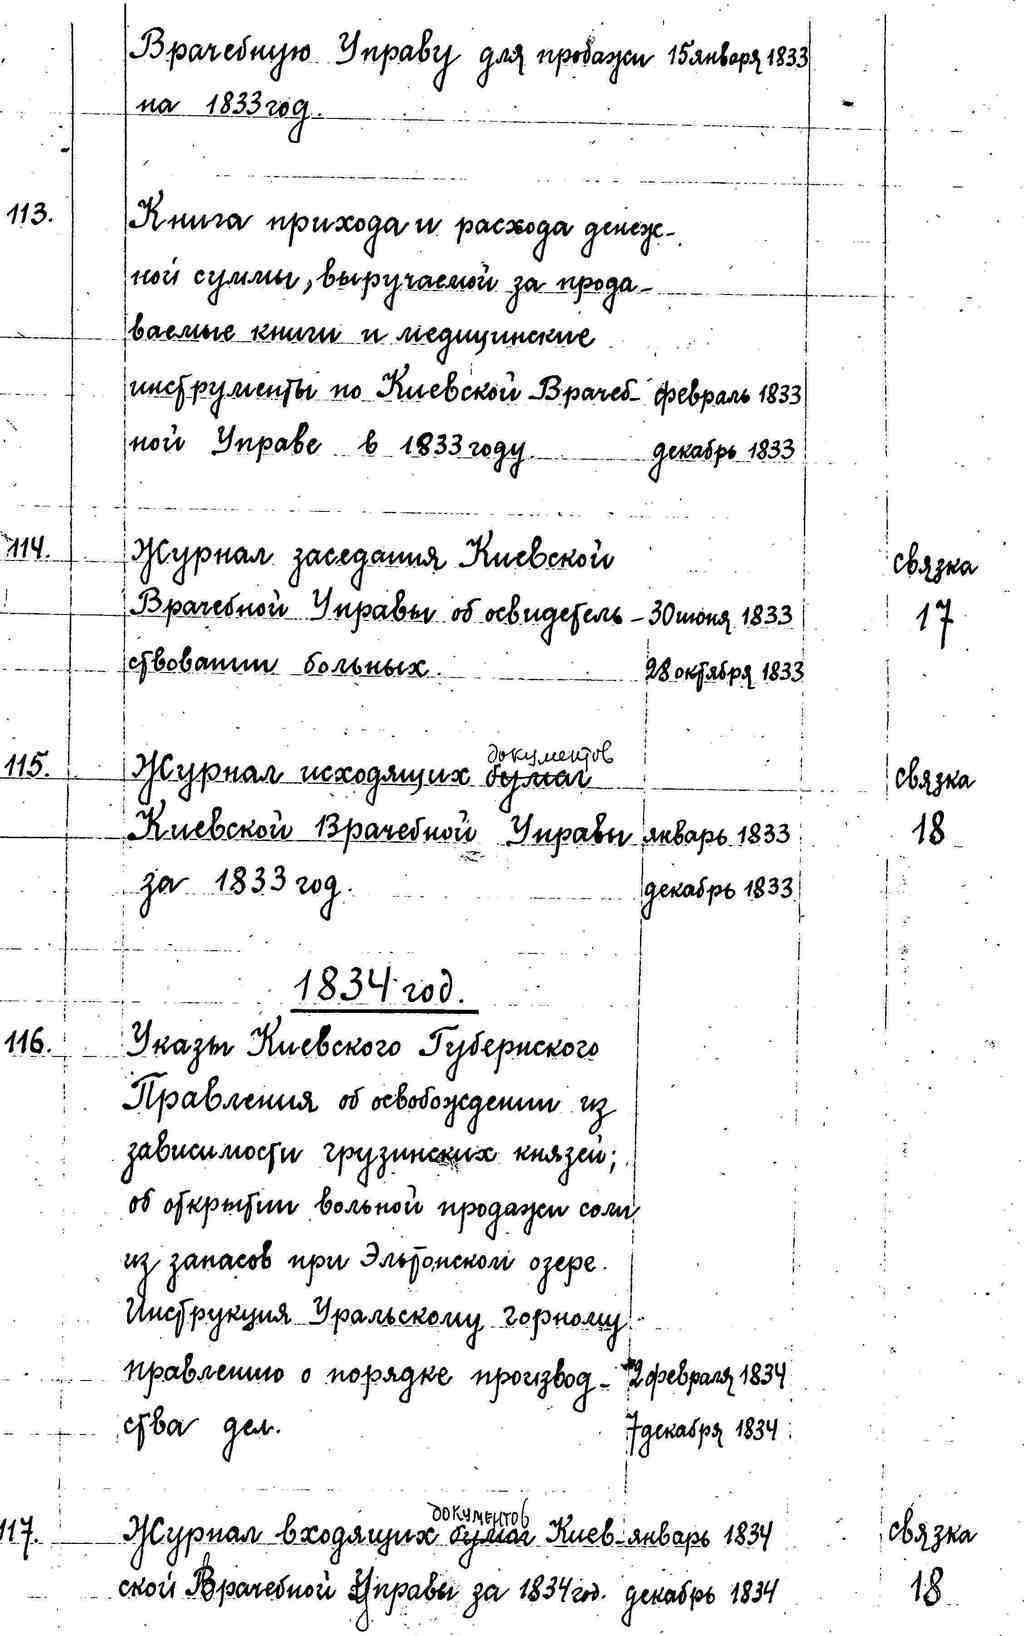 Врачебную Управу для продажи 15 января 1833
на 1833 год.
113. Книга прихода и расхода денеж-
ной суммы, выручаемой за прода-
ваемые книги и медицинские
инструменты по Киевской Врачеб- февраль 1833
ной Управе в 1833 году декабрь 1833
114. Журнал заседания Киевской связка
Врачебной Управы об освидетель- 30 июня 1833 17
ствовании больных. 28 октября 1833
документов
115. Журнал исходящих бумаг связка
Киевской Врачебной Управы январь 1833 18
за 1833 год. декабрь 1833
1834 год.
116. Указы Киевского Губернского
Правления об освобождении из
зависимости грузинских князей;
об открытии вольной продажи соли
из запасов при Эльтонском озере.
Инструкция Уральскому горному
правлению о порядке производ- 2 февраля 1834
ства дел. 7 декабря 1834
документов
117. Журнал входящих бумаг Киев- январь 1834 связка
ской Врачебной Управы за 1834 год. декабрь 1834 18